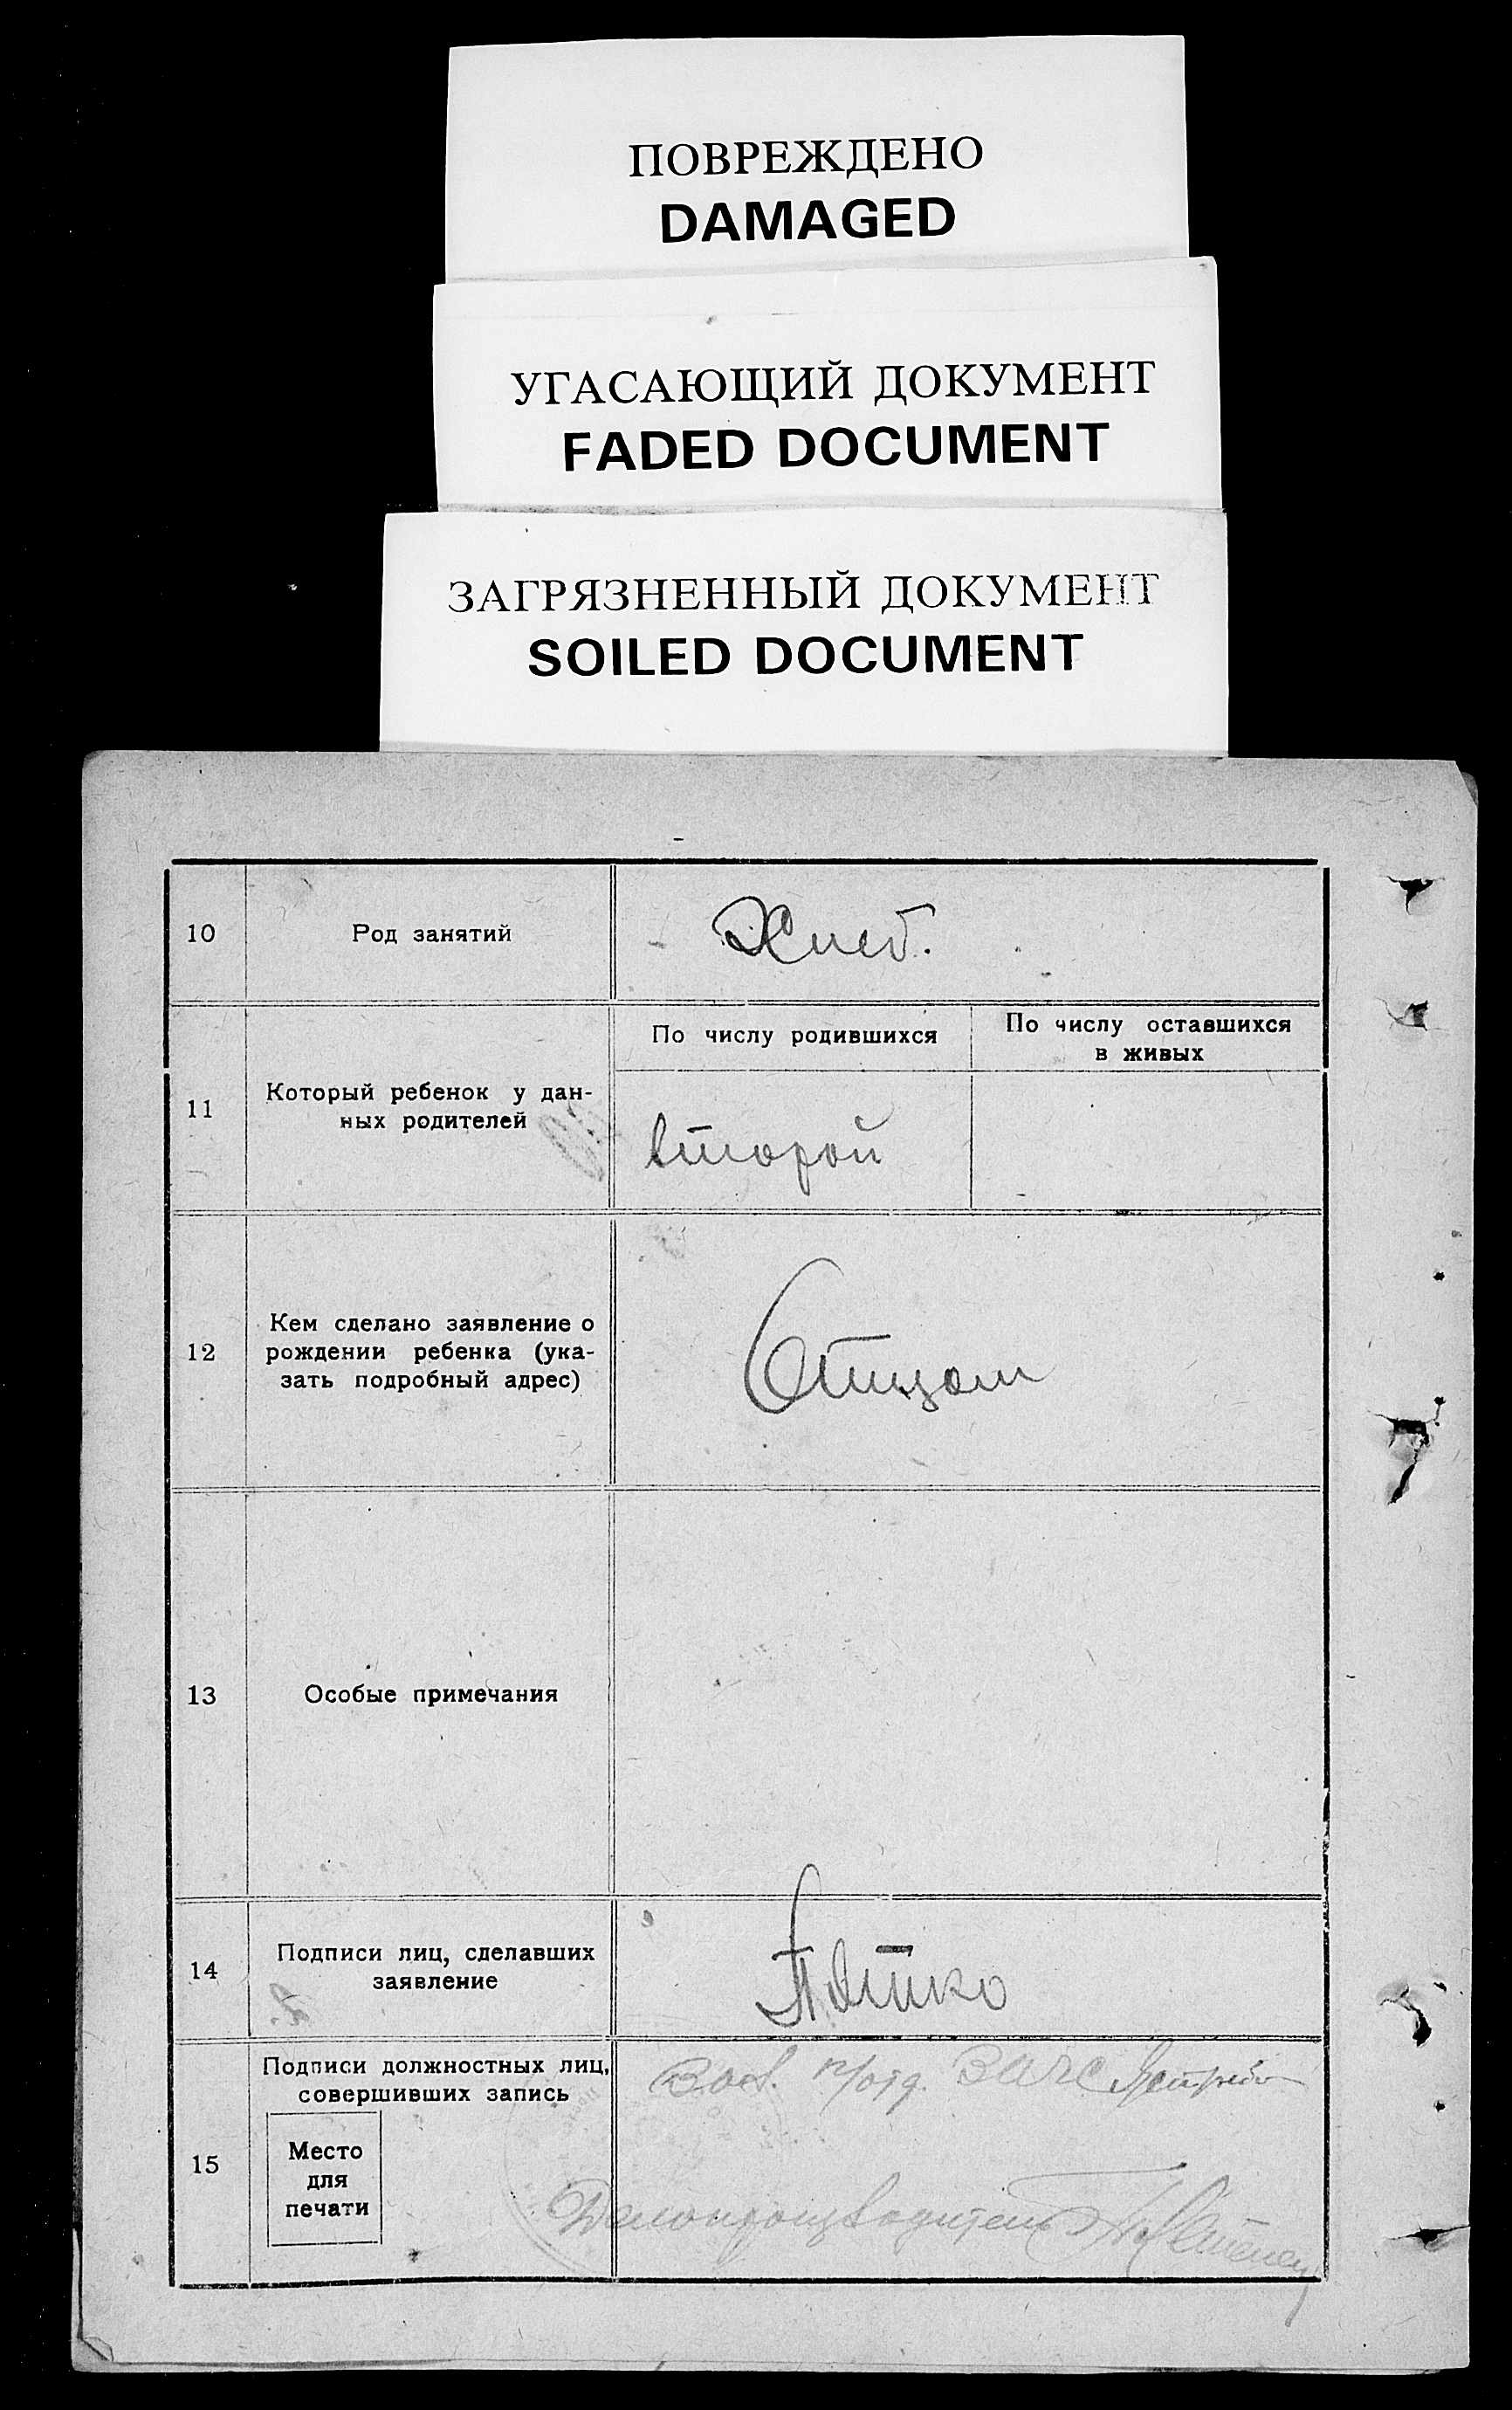 ПОВРЕЖДЕНО
DAMAGED
УГАСАЮЩИЙ ДОКУМЕНТ
FADED DOCUMENT
ЗАГРЯЗНЕННЫЙ ДОКУМЕНТ
SOILED DOCUMENT
10
Род занятий
Хлеб.
11
Который ребенок у дан-
ных родителей
По числу родившихся
По числу оставшихся
в живых
второй
12
Кем сделано заявление о
рождении ребенка (ука-
зать подробный адрес)
Отцом
13
Особые примечания
14
Подписи лиц, сделавших
заявление
Пятко
15
Подписи должностных лиц,
совершивших запись
Место
для
печати
Зав. п/отд. ЗАГС
Делопроизводитель